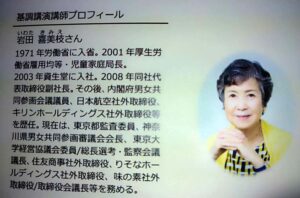 基調講演講師プロフィール
いわた きみえ
岩田 喜美枝さん
1971年労働省に入省。2001年厚生労
働省雇用均等・児童家庭局長。
2003年資生堂に入社。2008年同社代
表取締役副社長。その後、内閣府男女共
同参画会議議員、日本航空社外取締役、
キリンホールディングス社外取締役等
を歴任。現在は、東京都監査委員、神奈
川県男女共同参画審議会会長、東京大
学経営協議会委員/総長選考・監察会議
議長、住友商事社外取締役、りそなホー
ルディングス社外取締役、味の素社外
取締役/取締役会議長等を務める。